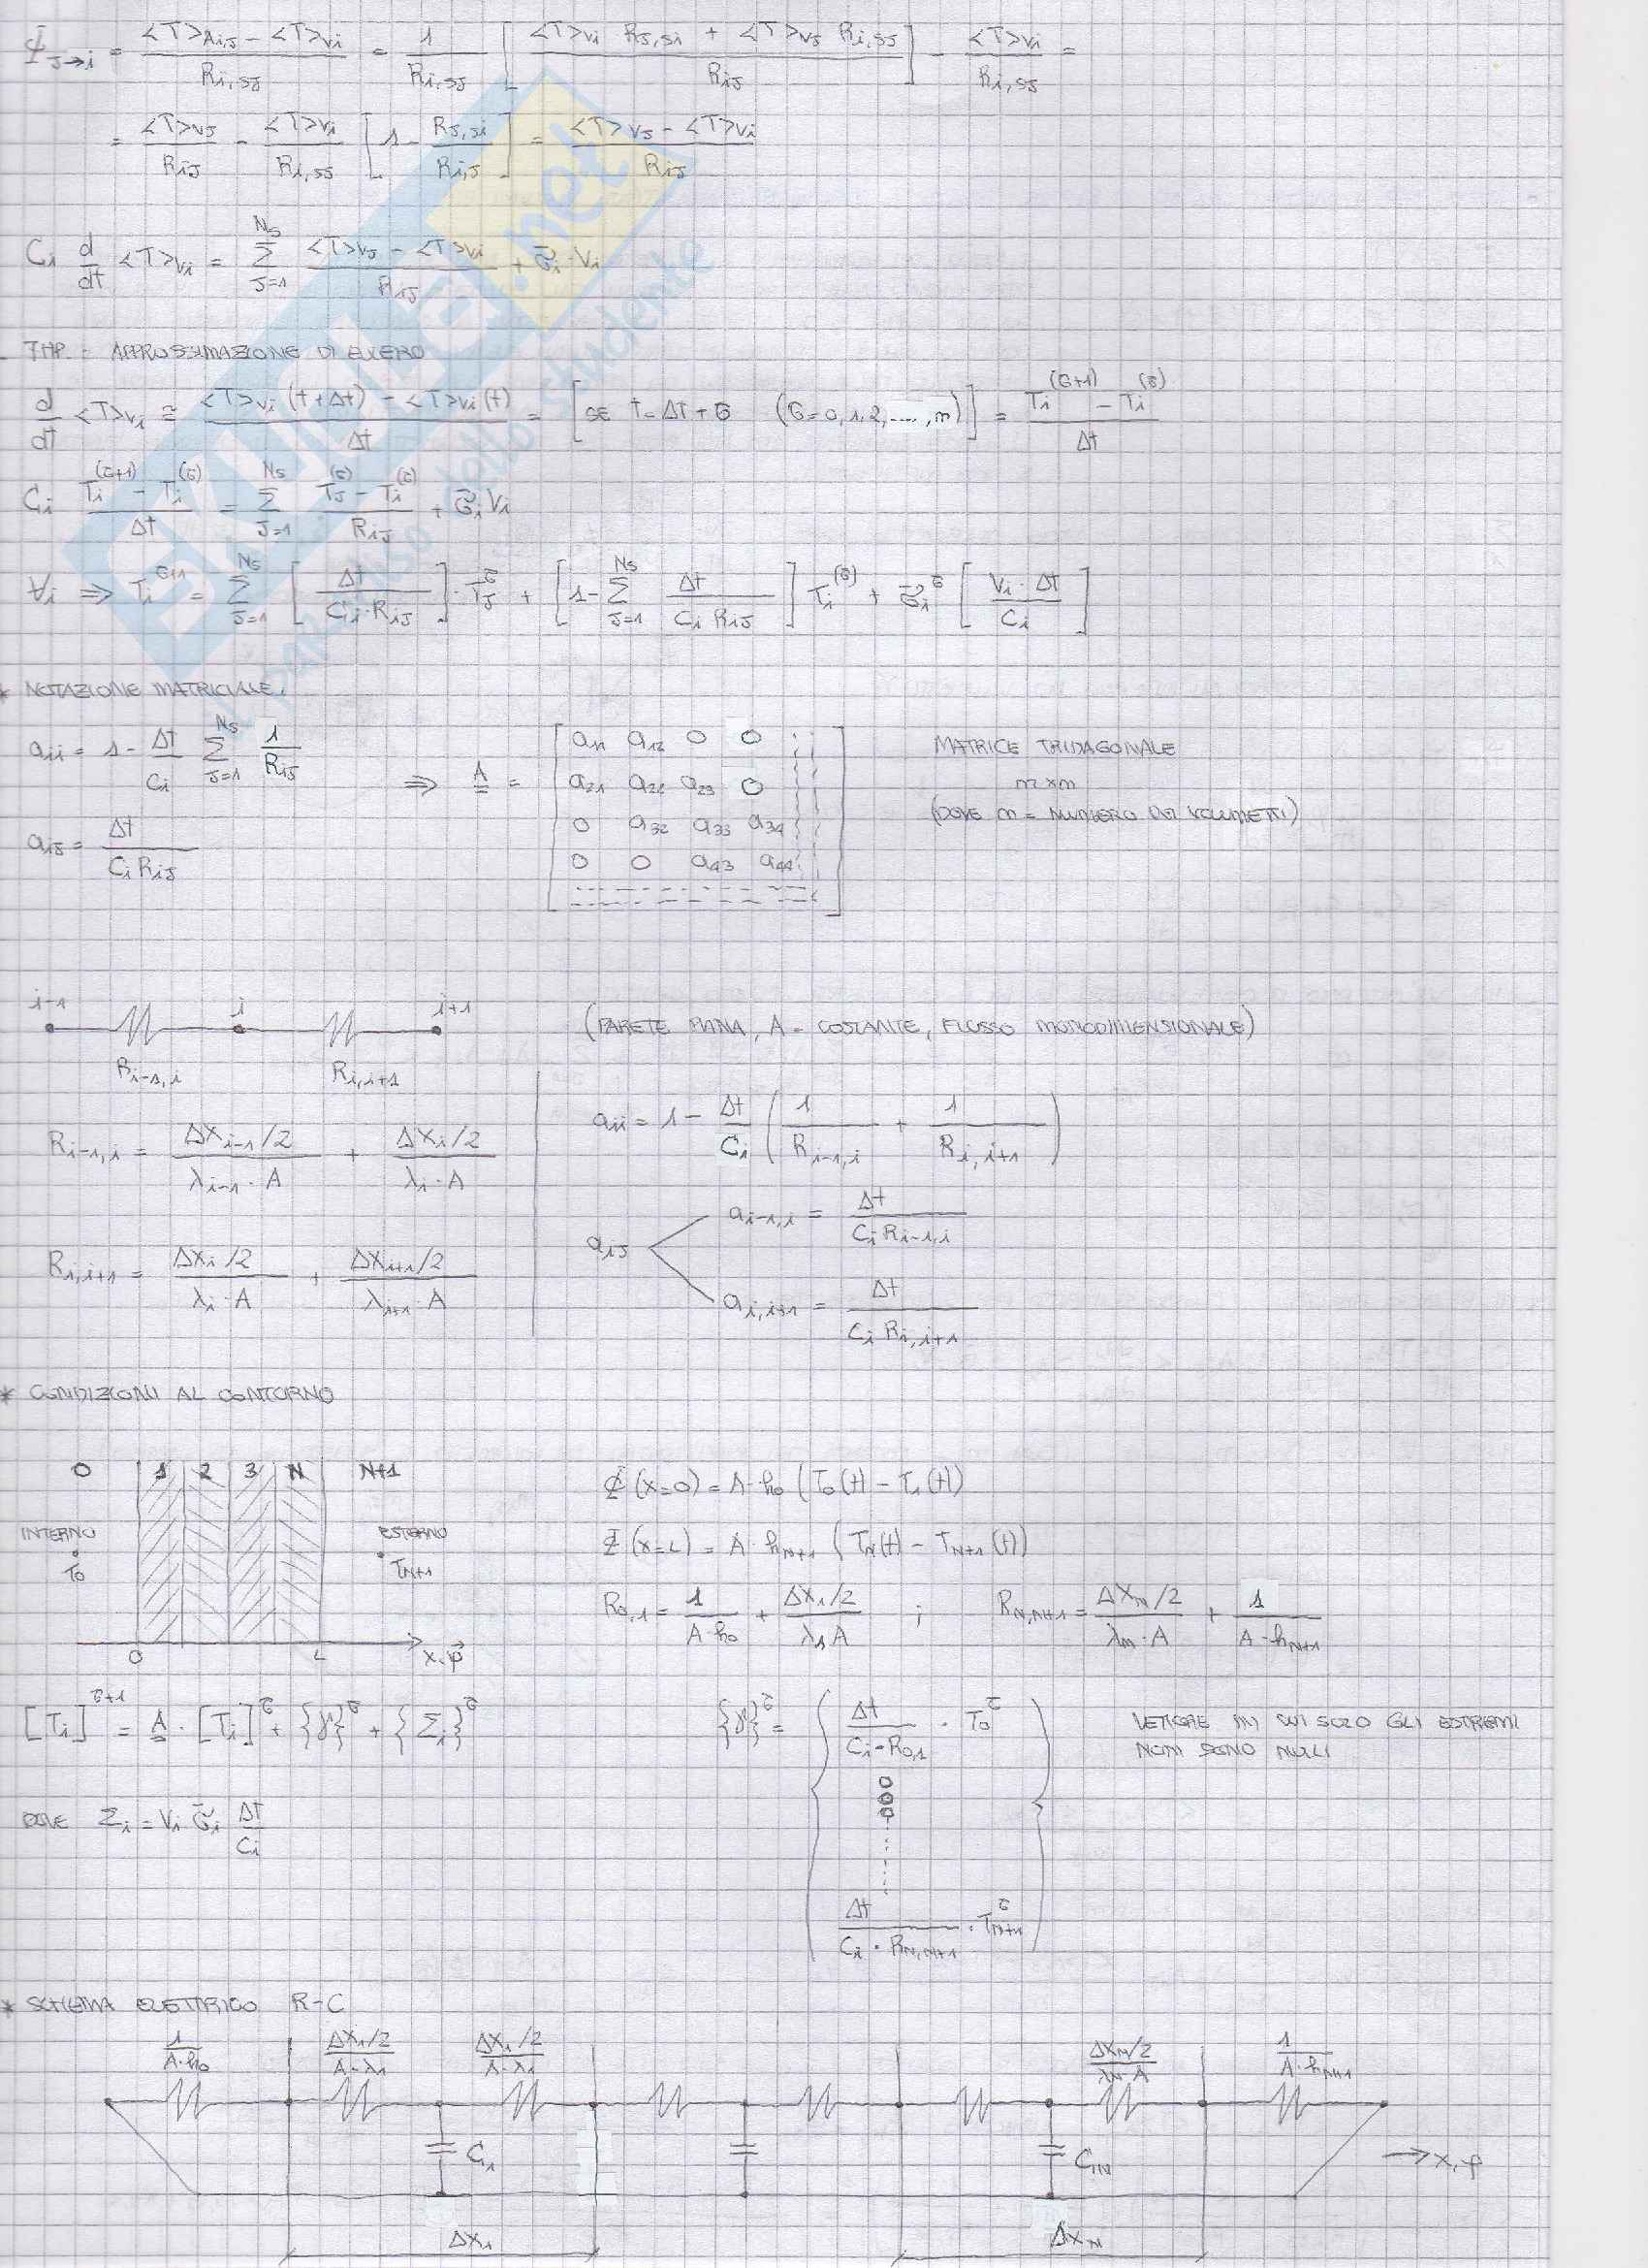 Φ̇_J→i = (<T>Ai,J - <T>Vi) / Ri,SJ = 1 / Ri,SJ [ (<T>Vi RJ,Si + <T>VJ Ri,SJ) / RiJ ] - <T>Vi / Ri,SJ =
= <T>VJ / RiJ - <T>Vi / Ri,SJ [ 1 - RJ,Si / Ri,J ] = (<T>VJ - <T>Vi) / RiJ
Ci d/dt <T>Vi = Σ_{J=1}^{NS} (<T>VJ - <T>Vi) / RiJ + σ̃i · Vi
- IHP. - APPROSSIMAZIONE DI EULERO
d/dt <T>Vi ≅ (<T>Vi (t+Δt) - <T>Vi (t)) / Δt = [ SE t = Δt + σ (σ = 0,1,2,...., m) ] = (Ti^(σ+1) - Ti^(σ)) / Δt
Ci (Ti^(σ+1) - Ti^(σ)) / Δt = Σ_{J=1}^{NS} (TJ^(σ) - Ti^(σ)) / RiJ + σ̃i Vi
∀i ⇒ Ti^σ+1 = Σ_{J=1}^{NS} [ Δt / (Ci · RiJ) ] · TJ^σ + [ 1 - Σ_{J=1}^{NS} Δt / (Ci RiJ) ] Ti^(σ) + σ̃i^σ [ Vi · Δt / Ci ]
* NOTAZIONE MATRICIALE.
aii = 1 - Δt / Ci Σ_{J=1}^{NS} 1 / RiJ
⇒ A =
a11 a12 0 0
a21 a22 a23 0
0 a32 a33 a34
0 0 a43 a44
MATRICE TRIDAGONALE
m × m
(DOVE m = NUMERO DEI VOLUMETTI)
aiJ = Δt / (Ci RiJ)
i-1 i i+1
Ri-1,i Ri,i+1
(PARETE PIANA, A - COSTANTE, FLUSSO MONODIMENSIONALE)
Ri-1,i = (ΔXi-1/2) / (λi-1 · A) + (ΔXi/2) / (λi · A)
Ri,i+1 = (ΔXi/2) / (λi · A) + (ΔXi+1/2) / (λi+1 · A)
aii = 1 - Δt / Ci ( 1 / Ri-1,i + 1 / Ri,i+1 )
aiJ
ai-1,i = Δt / (Ci Ri-1,i)
ai,i+1 = Δt / (Ci Ri,i+1)
* CONDIZIONI AL CONTORNO
0 1 2 3 N N+1
INTERNO
T0
ESTERNO
TN+1
0 L x,φ
Φ (x=0) = A · h0 (T0(t) - T1(t))
Φ (x=L) = A · hN+1 (TN(t) - TN+1(t))
R0,1 = 1 / (A · h0) + (ΔX1/2) / (λ1 A) ; RN,N+1 = (ΔXN/2) / (λN · A) + 1 / (A · hN+1)
[Ti]^σ+1 = A · [Ti]^σ + {γ}^σ + {Σi}^σ
{γ}^σ =
Δt / (Ci · R0,1) · T0^σ
0
0
0
Δt / (Ci · RN,N+1) · TN+1^σ
VETTORE IN CUI SOLO GLI ESTREMI
NON SONO NULLI
DOVE Σi = Vi σ̃i ΔT / Ci
* SCHEMA ELETTRICO R-C
1 / (A·h0) (ΔX1/2) / (A·λ1) (ΔX1/2) / (A·λ1) (ΔXN/2) / (λN·A) 1 / (A·hN+1)
C1 CN → x,φ
ΔX1 ΔXN
SKUOLA.net
il paradiso dello studente